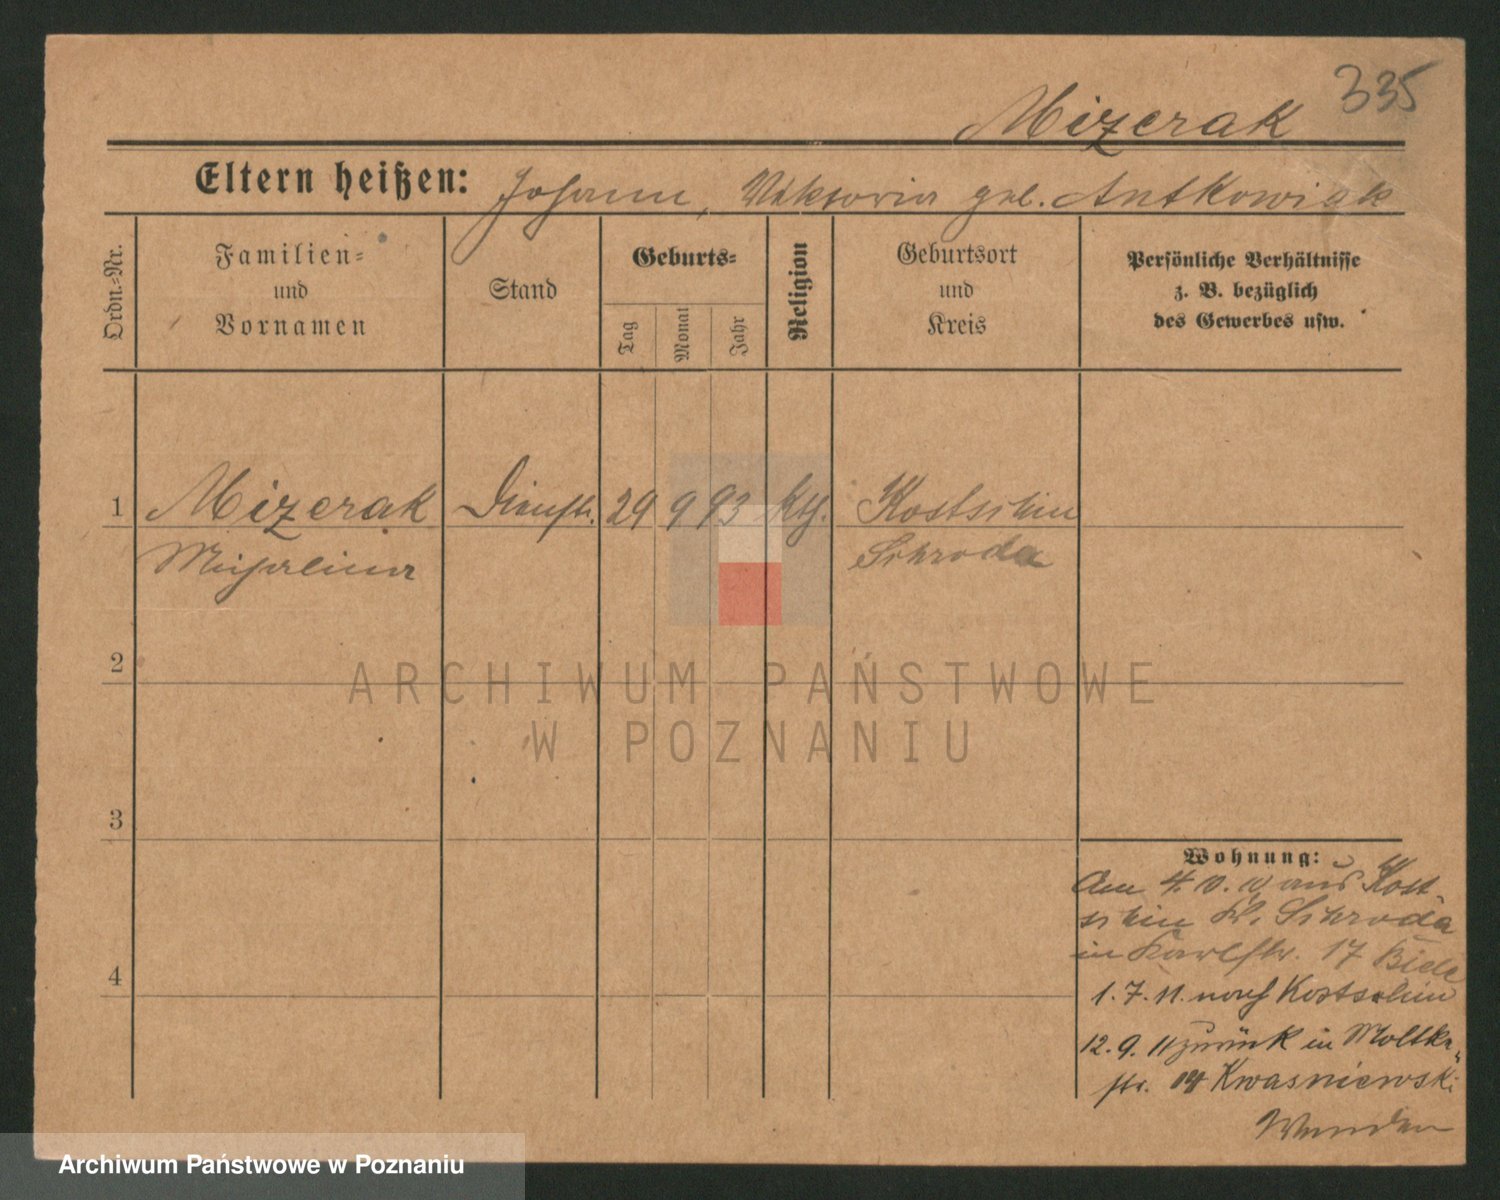 335
Mizerak
Eltern heißen: Johann, Viktoria geb. Antkowiak
Ordn.-Nr.
Familien=
und
Vornamen
Stand
Geburts=
Tag
Monat
Jahr
Religion
Geburtsort
und
Kreis
Persönliche Verhältnisse
z. B. bezüglich
des Gewerbes usw.
1 Mizerak Dienstm. 29 9 93 kth. Kostschin
Michalina Schroda
2
3
4
Wohnung:
Am 4. 10. 10 aus Kost-
schin Kr. Schroda
in Karlstr. 17
1. 7. 11. nach Kostschin
12. 9. 11 zurück in Moltke
str. 14 Kwasniewski
ARCHIWUM PAŃSTWOWE
W POZNANIU
Archiwum Państwowe w Poznaniu